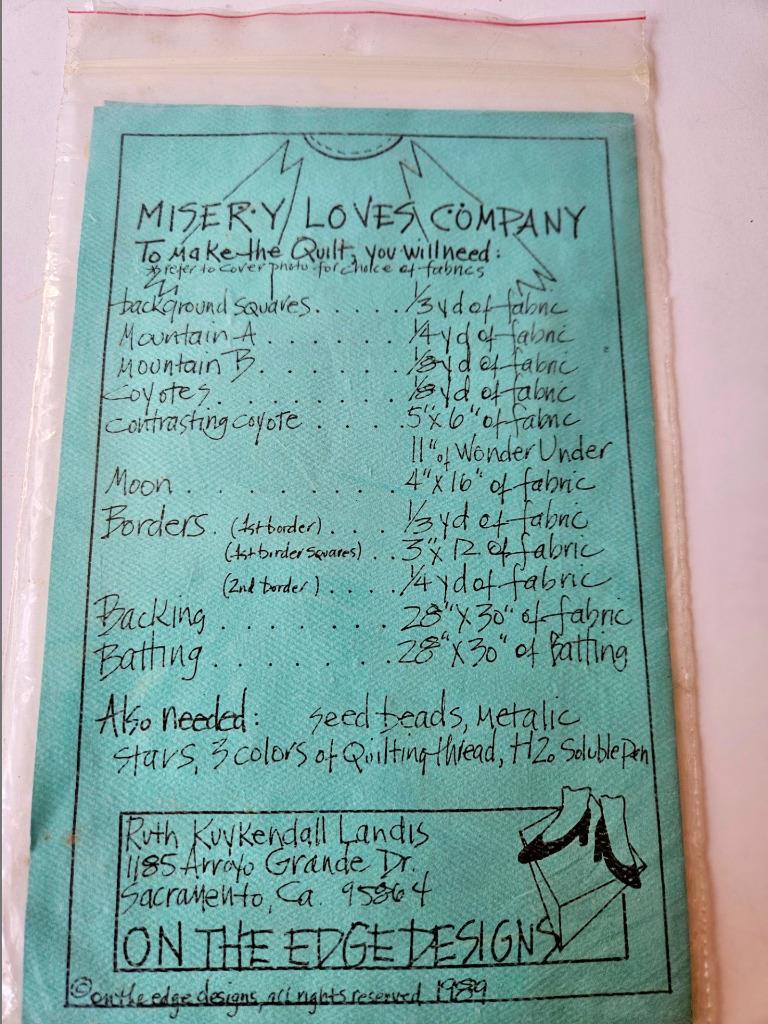 MISERY LOVES COMPANY
To Make the Quilt, you will need:
*refer to cover photo for choice of fabrics
background squares. . . . . . 1/3 yd of fabric
Mountain A . . . . . . . 1/4 yd of fabric
Mountain B. . . . . . . 1/8 yd of fabric
Coyotes. . . . . . . . 1/8 yd of fabric
contrasting coyote . . . . . 5"x 6" of fabric
11" of Wonder Under
Moon . . . . . . . . 4" x 16" of fabric
Borders. (1st border) . . . . 1/3 yd of fabric
(1st border squares) . . 3" x 12 of fabric
(2nd border) . . . . 1/4 yd of fabric
Backing . . . . . . . 28" X 30" of fabric
Batting . . . . . . . 28" X 30" of Batting
Also needed: seed beads, Metalic
stars, 3 colors of Quilting thread, H2O Soluble Pen
Ruth Kuykendall Landis
1185 Arroyo Grande Dr.
Sacramento, Ca. 95864
ON THE EDGE DESIGNS
© on the edge designs, all rights reserved 1989